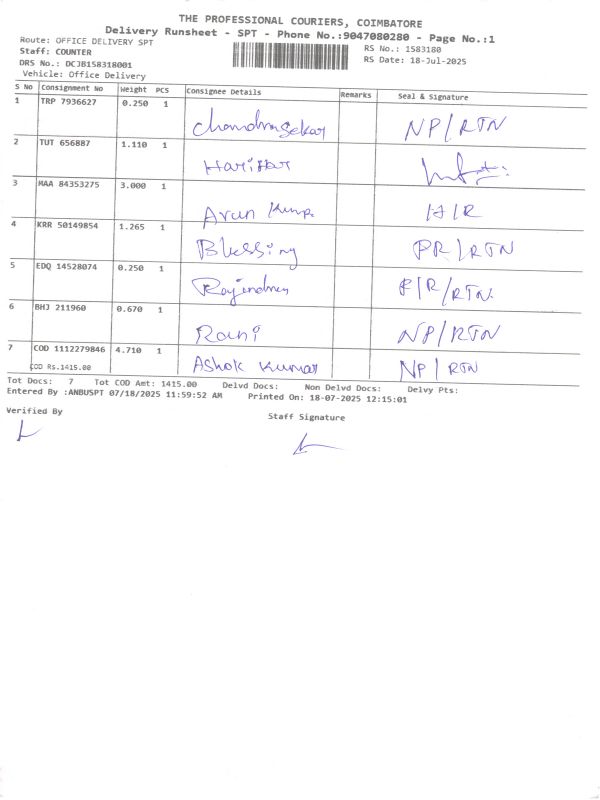 THE PROFESSIONAL COURIERS, COIMBATORE
Delivery Runsheet - SPT - Phone No.:9047080280 - Page No.:1
Route: OFFICE DELIVERY SPT
RS No.: 1583180
Staff: COUNTER
RS Date: 18-Jul-2025
DRS No.: DCJB158318001
Vehicle: Office Delivery
S No Consignment No Weight PCS Consignee Details Remarks Seal & Signature
1 TRP 7936627 0.250 1
Chandrasekar NP/RTN
2 TUT 656887 1.110 1
Harihar
3 MAA 84353275 3.000 1
Arun H/R
4 KRR 50149854 1.265 1
Blessing PR/RTN
5 EDQ 14528074 0.250 1
R/RTN.
6 BHJ 211960 0.670 1
Rani NP/RTN
7 COD 1112279846 4.710 1
Ashok Kumar NP/RTN
COD Rs.1415.00
Tot Docs: 7 Tot COD Amt: 1415.00 Delvd Docs: Non Delvd Docs: Delvy Pts:
Entered By :ANBUSPT 07/18/2025 11:59:52 AM Printed On: 18-07-2025 12:15:01
Verified By
Staff Signature